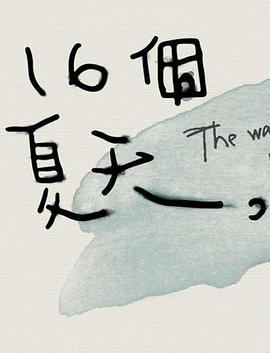 16個
夏天
The wa